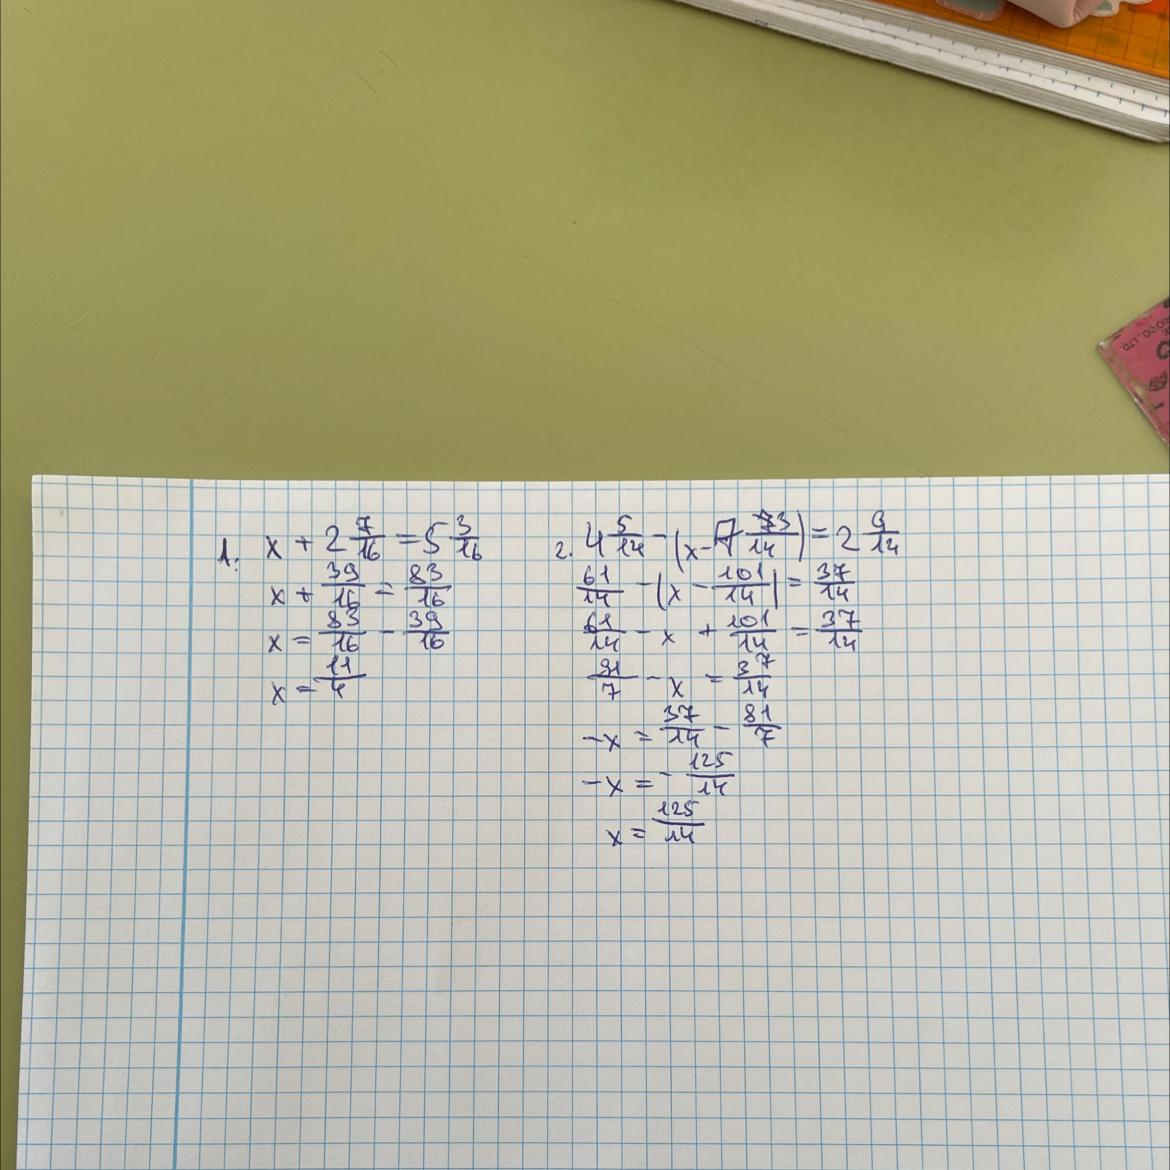 1. x + 2 7/16 = 5 3/16
x + 39/16 = 83/16
x = 83/16 - 39/16
x = 11/4
2. 4 5/14 - (x - 7 3/14) = 2 9/14
61/14 - (x - 101/14) = 37/14
61/14 - x + 101/14 = 37/14
81/7 - x = 37/14
-x = 37/14 - 81/7
-x = - 125/14
x = 125/14
CO., LTD.